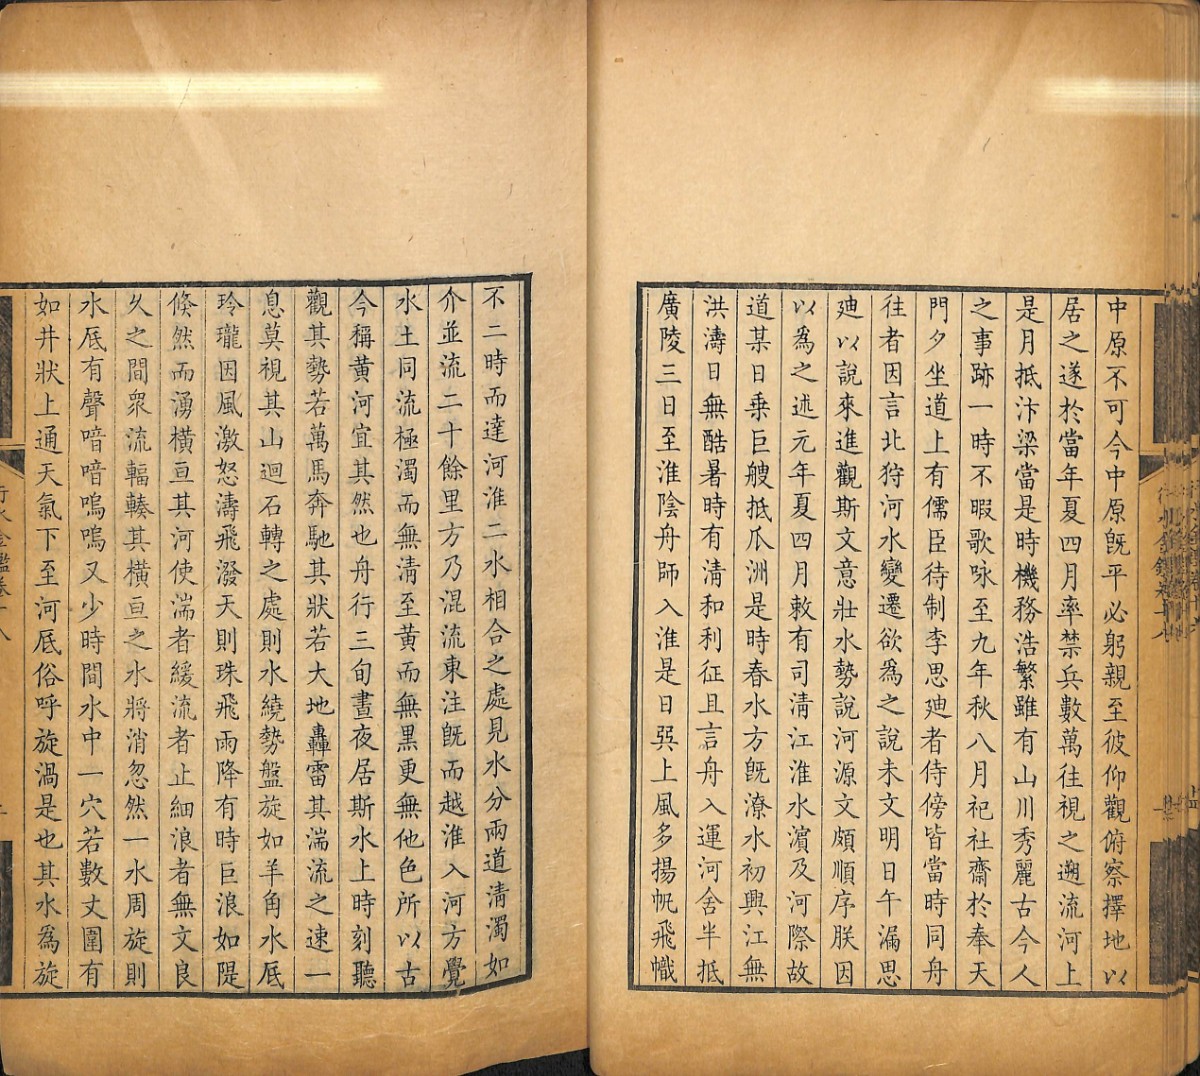 中原不可今中原旣平必躬親至彼仰觀俯察擇地以
居之遂於當年夏四月率禁兵數萬往視之遡流河上
是月抵汴梁當是時機務浩繁雖有山川秀麗古今人
之事跡一時不暇歌咏至九年秋八月祀社齋於奉天
門夕坐道上有儒臣待制李思廸者侍傍皆當時同舟
往者因言北狩河水變遷欲爲之說未文明日午漏思
廸以說來進觀斯文意壯水勢說河源文頗順序朕因
以爲之述元年夏四月敕有司淸江淮水濵及河際故
道某日乗巨艘抵瓜洲是時春水方旣潦水初興江無
洪濤日無酷暑時有淸和利征且言舟入運河舍半抵
廣陵三日至淮陰舟師入淮是日巽上風多揚帆飛幟
不二時而達河淮二水相合之處見水分兩道淸濁如
介並流二十餘里方乃混流東注旣而越淮入河方覺
水土同流極濁而無淸至黄而無黒更無他色所以古
今稱黄河宜其然也舟行三旬晝夜居斯水上時刻聽
觀其勢若萬馬奔馳其狀若大地轟雷其湍流之速一
息莫視其山迴石轉之處則水繞勢盤旋如羊角水底
玲瓏因風激怒濤飛潑天則珠飛雨降有時巨浪如隄
倐然而湧橫亘其河使湍者緩流者止細浪者無文良
久之間衆流輻輳其橫亘之水將消忽然一水周旋則
水底有聲喑喑嗚嗚又少時間水中一穴若數丈圍有
如井狀上通天氣下至河底俗呼旋渦是也其水爲旋
行水金鑑卷十八